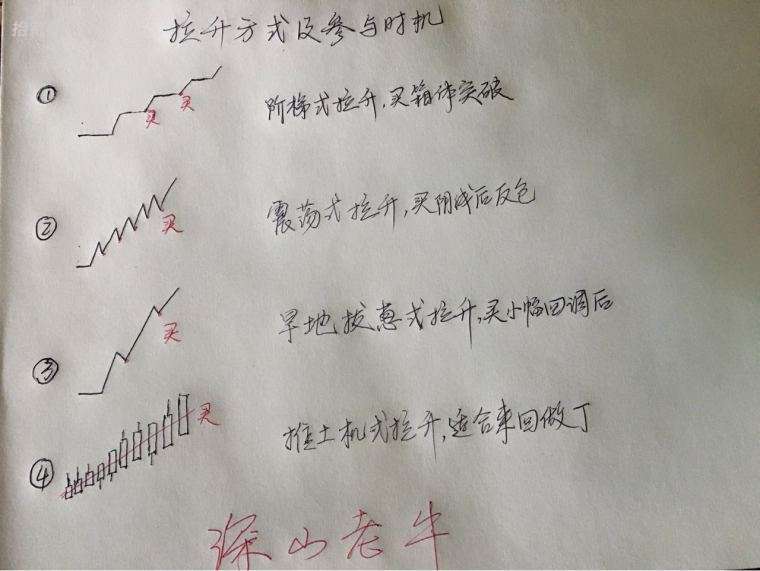 拉升方式及参与时机
① 买 买 阶梯式拉升，买箱体突破
② 买 震荡式拉升，买阴线后反包
③ 买 旱地拔葱式拉升，买小幅回调后
④ 买 推土机式拉升，适合来回做丁
深山老牛